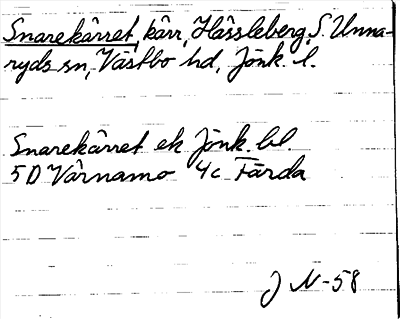 Snarekärret, kärr, Hässleberg, S. Unna-
ryds sn, Västbo hd, Jönk. l.
Snarekärret ek Jönk. bl.
5D Värnamo 4c Färda
J N-58